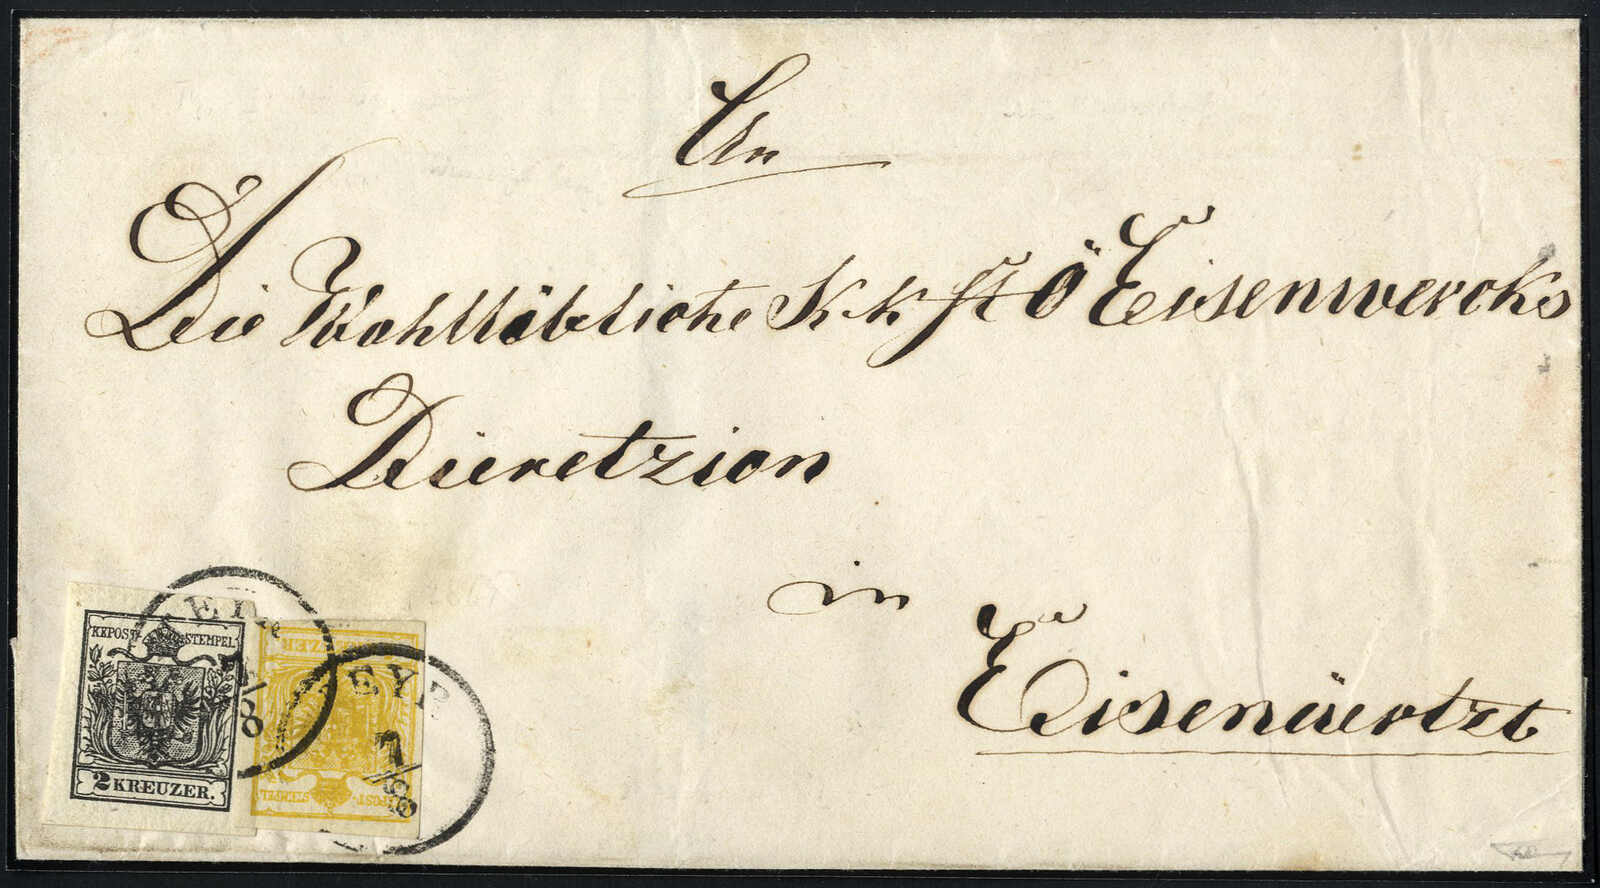 An
Die Wohllöbliche K k st Ö Eisenwercks
Dieretzion
in
Eisenäertzt
KKPOST-STEMPEL
2 KREUZER.
7/8
EYR
7/8
KREUZER
POST-STEMPEL